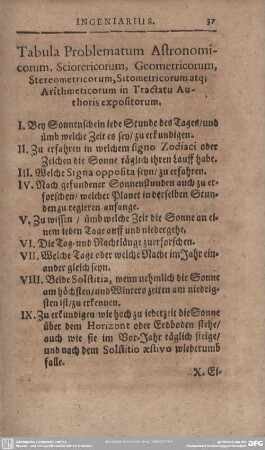 INGENIARIUS. 37
Tabula Problematum Astronomi-
corum, Sciotericorum, Geometricorum,
Stereometricorum, Sitometricorum atq;
Arithmeticorum in Tractatu Au-
thoris expositorum.
I. Bey Sonnenschein jede Stunde des Tages/und
ümb welche Zeit es sey/ zu erkundigen.
II. Zu erfahren in welchem signo Zodiaci oder
Zeichen die Sonne täglich ihren Lauff habe.
III. Welche Signa opposita seyn/ zu erfahren.
IV. Nach gefundener Sonnenstunden auch zu er-
forschen/ welcher Planet in derselben Stun-
den zu regieren anfange.
V. Zu wissen / ümb welche Zeit die Sonne an ei-
nem jeden Tage auff und niedergehe.
VI. Die Tag- und Nachtlänge zuerforschen.
VII. Welche Tage oder welche Nacht im Jahr ein-
ander gleich seyn.
VIII. Beide Solstitia, wenn nehmlich die Sonne
am höchsten/ und Winters zeiten am niedrig-
sten ist/ zu erkennen.
IX. Zu erkundigen/ wie hoch zu jederzeit die Sonne
über dem Horizont oder Erdboden stehe/
auch wie sie im Vor-Jahr täglich steige/
und nach dem Solstitio æstivo wiederumb
falle.
X. El-